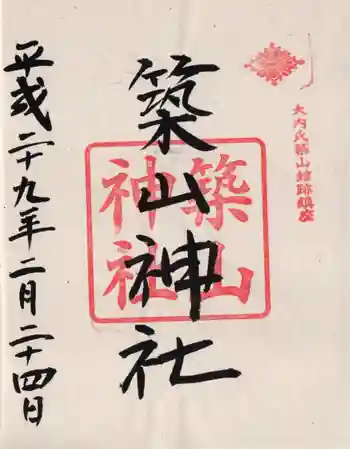 大内氏築山館跡鎮座
築山神社
築山
神社
平成二十九年二月二十四日